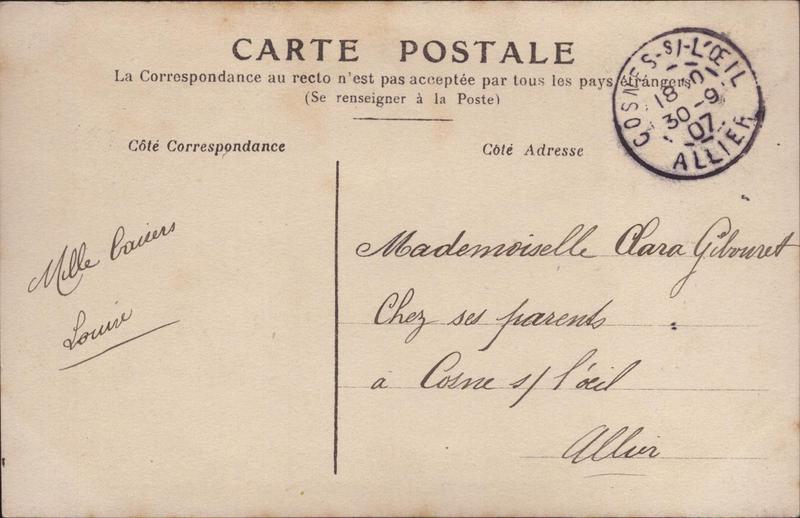 CARTE POSTALE
La Correspondance au recto n'est pas acceptée par tous les pays étrangers
(Se renseigner à la Poste)
COSNES-S/-L'ŒIL
18-0
30-9
07
ALLIER
Côté Correspondance
Côté Adresse
Mille baisers
Louise
Mademoiselle Clara Gibouret
Chez ses parents
a Cosne s/ l'œil
Allier